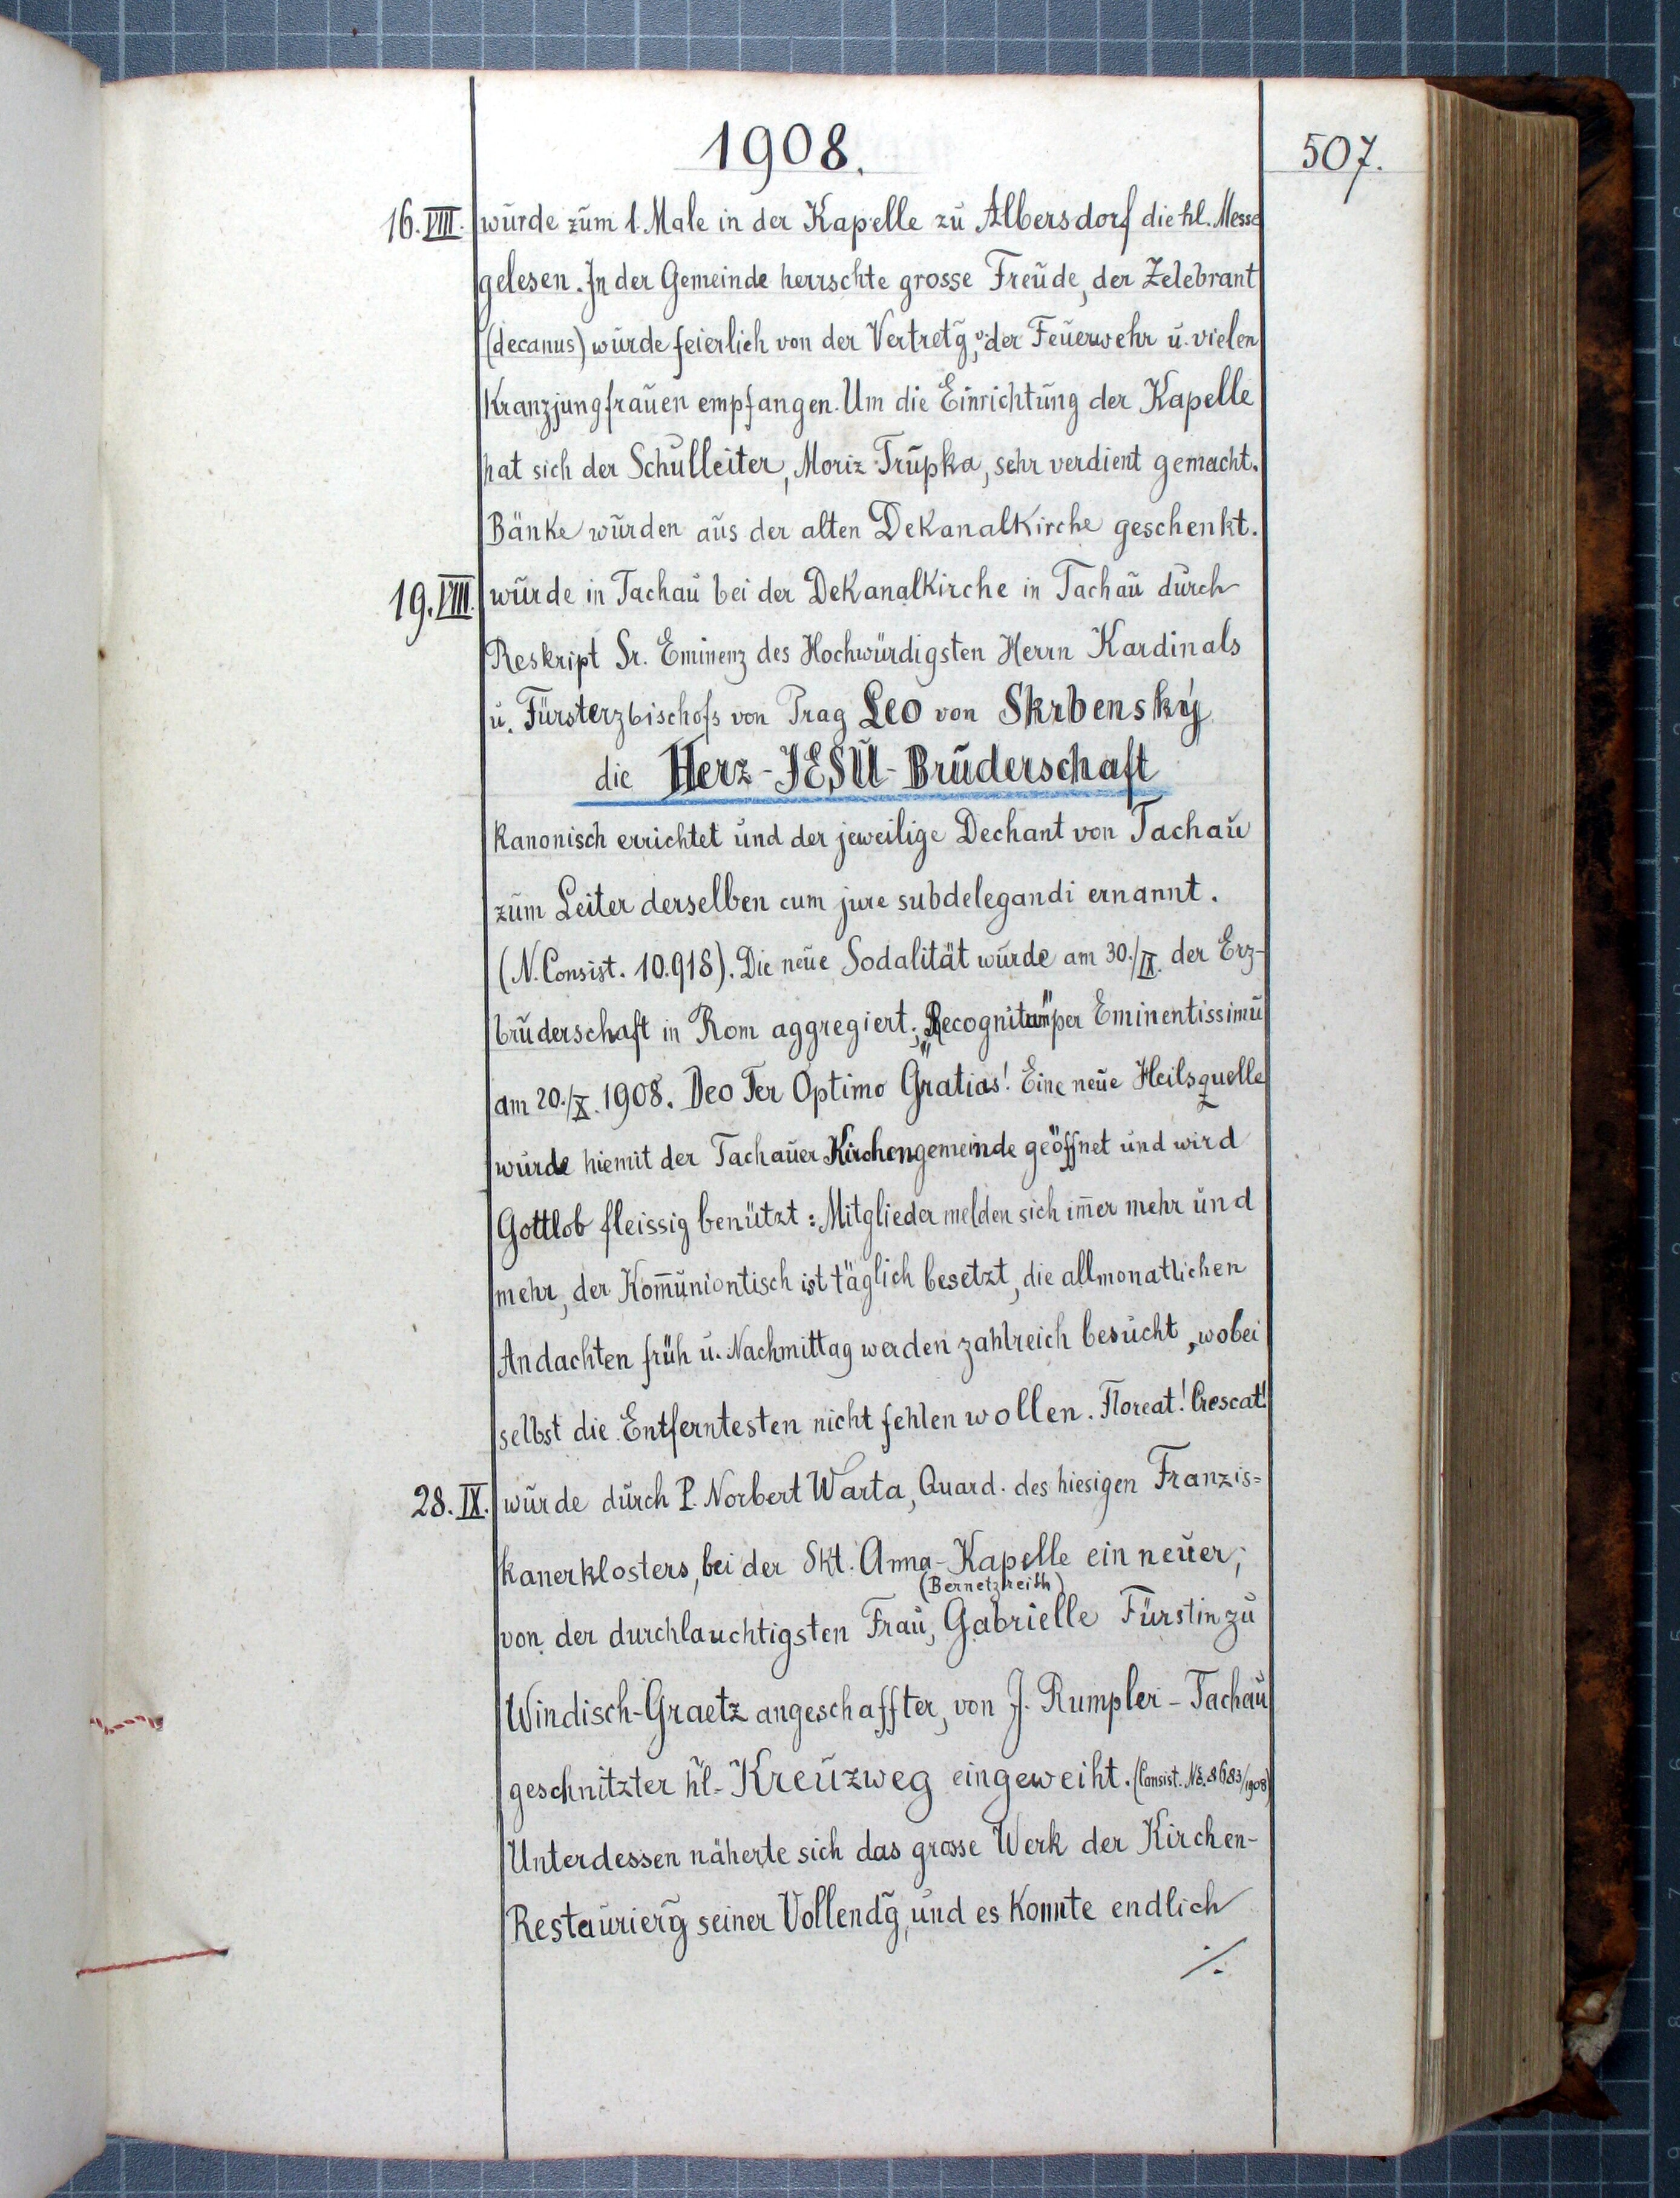 1908.
507.
16. VIII. wurde zum 1. Male in der Kapelle zu Albersdorf die hl. Messe
gelesen. In der Gemeinde herrschte grosse Freude, der Zelebrant
(decanus) wurde feierlich von der Vertretg̃, v. der Feuerwehr u. vielen
Kranzjungfrauen empfangen. Um die Einrichtung der Kapelle
hat sich der Schulleiter, Moriz Trupka, sehr verdient gemacht.
Bänke wurden aus der alten Dekanalkirche geschenkt.
19. VIII. wurde in Tachau bei der Dekanalkirche in Tachau durch
Reskript Sr. Eminenz des Hochwürdigsten Herrn Kardinals
u. Fürsterzbischofs von Prag Leo von Skrbenský
die Herz-JESU-Bruderschaft
kanonisch errichtet und der jeweilige Dechant von Tachau
zum Leiter derselben cum jure subdelegandi ernannt.
(N. Consist. 10.918). Die neue Sodalität wurde am 30./IX. der Erz-
bruderschaft in Rom aggregiert; „Recognitum" per Eminentissimū
am 20./X. 1908. Deo Ter Optimo Gratias! Eine neue Heilsquelle
wurde hiemit der Tachauer Kirchengemeinde geöffnet und wird
Gottlob fleissig benützt: Mitglieder melden sich im̄er mehr und
mehr, der Kom̄uniontisch ist täglich besetzt, die allmonatlichen
Andachten früh u. Nachmittag werden zahlreich besucht, wobei
selbst die Entferntesten nicht fehlen wollen. Floreat! Crescat!
28. IX. wurde durch P. Norbert Warta, Quard. des hiesigen Franzis=
kanerklosters, bei der Skt. Anna-Kapelle ein neuer,
(Bernetzreith)
von der durchlauchtigsten Frau, Gabrielle Fürstin zu
Windisch-Graetz angeschaffter, von J. Rumpler - Tachau
geschnitzter hl. Kreuzweg eingeweiht. (Consist. No. 8683/1908)
Unterdessen näherte sich das grosse Werk der Kirchen-
Restaurierg̃ seiner Vollendg̃, und es konnte endlich
./.